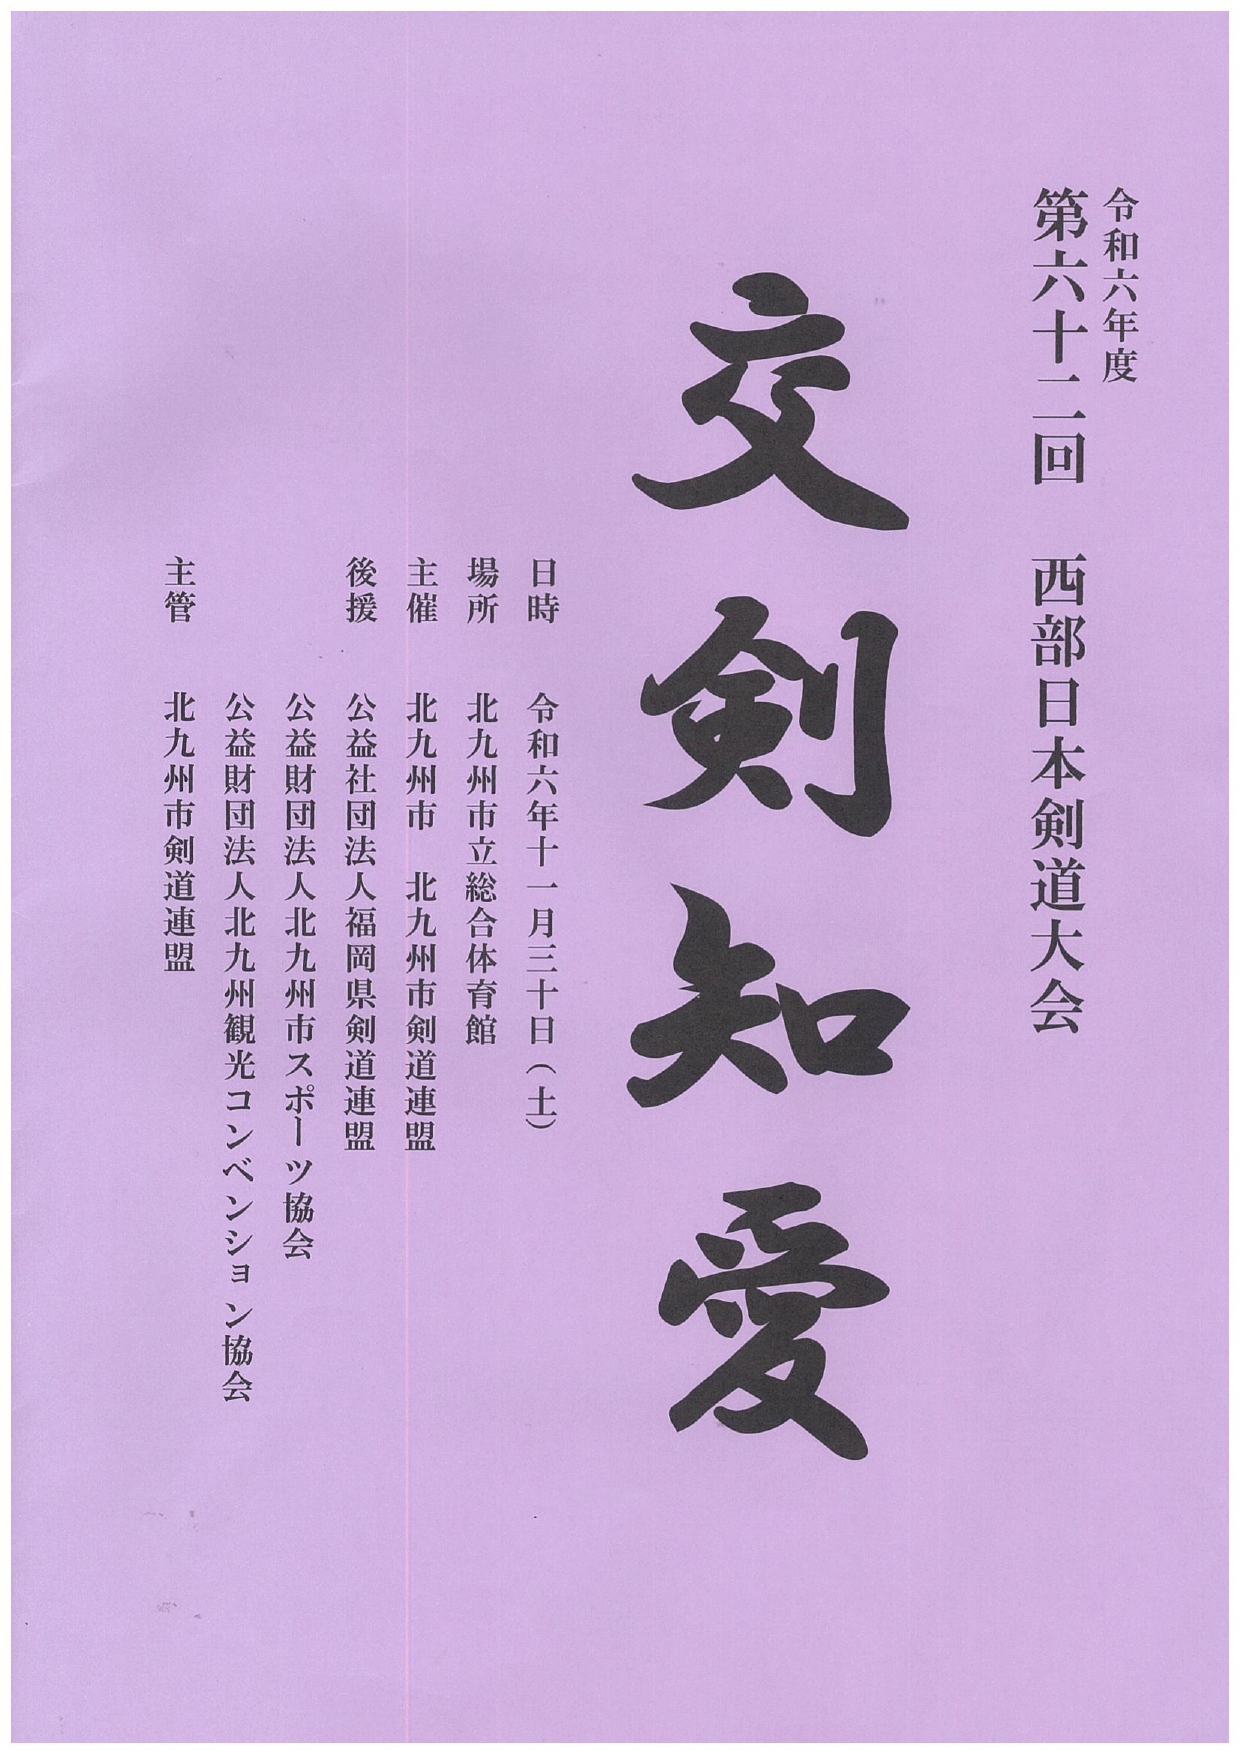 令和六年度
第六十二回　西部日本剣道大会
交剣知愛
日時　令和六年十一月三十日（土）
場所　北九州市立総合体育館
主催　北九州市　北九州市剣道連盟
後援　公益社団法人福岡県剣道連盟
公益財団法人北九州市スポーツ協会
公益財団法人北九州観光コンベンション協会
主管　北九州市剣道連盟